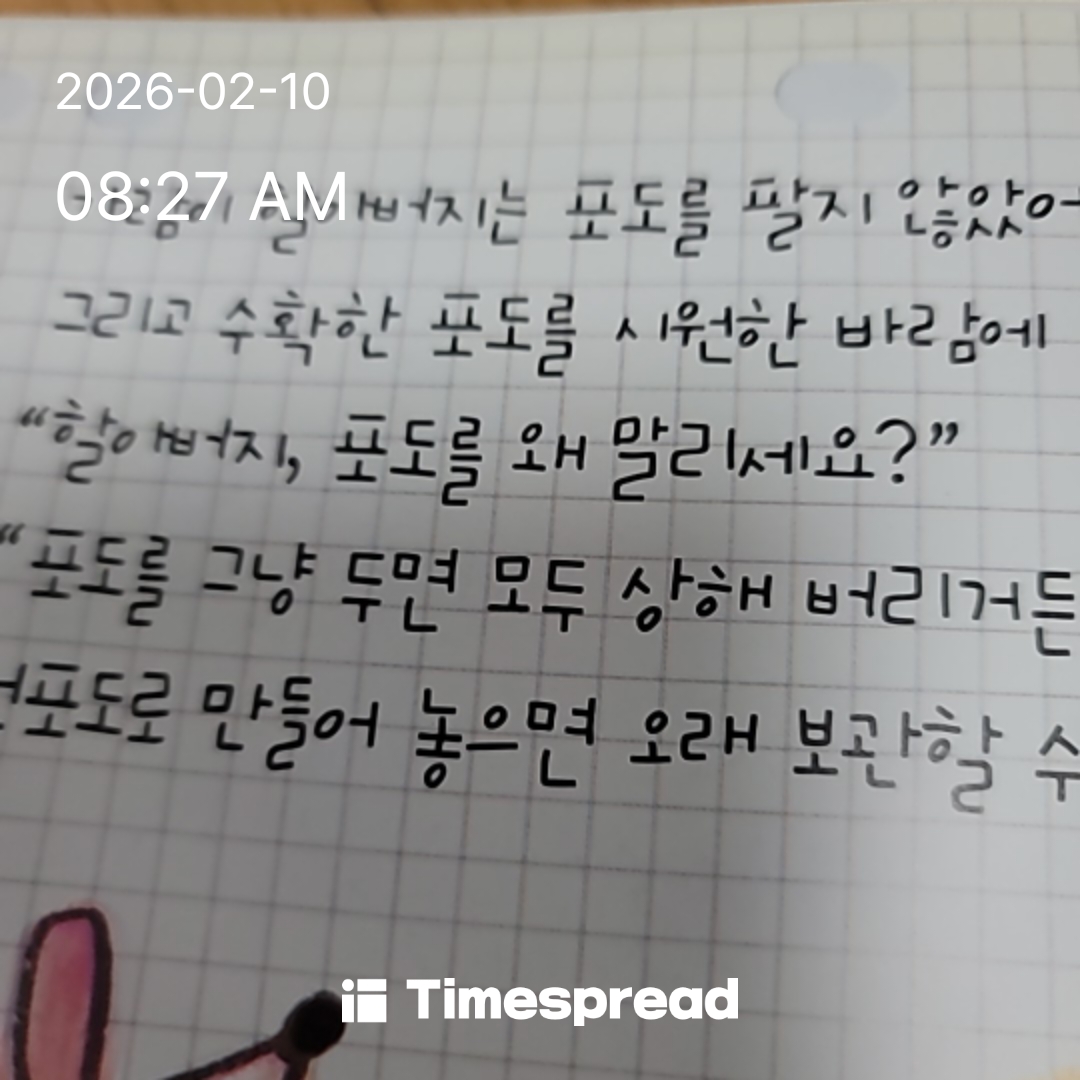 2026-02-10
08:27 AM
할아버지는 포도를 팔지 않았어
그리고 수확한 포도를 시원한 바람에
“할아버지, 포도를 왜 말리세요?”
“포도를 그냥 두면 모두 상해 버리거든
건포도로 만들어 놓으면 오래 보관할 수
Timespread